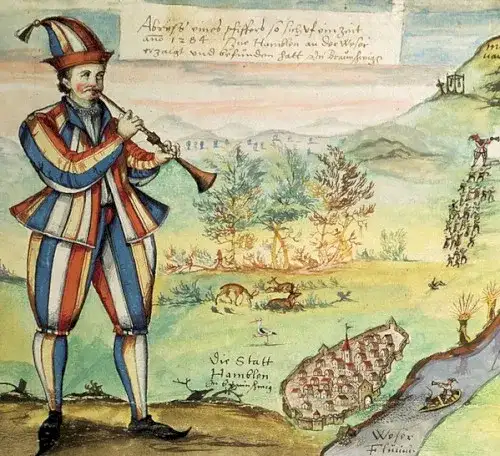 Abryss eines pfiffers so sich Vf ein Zeit
ano 1284 Zue Hamblen an der Weser
erzaigt und befunden hatt
Die Statt
Hamblen
Weser
Fluuius